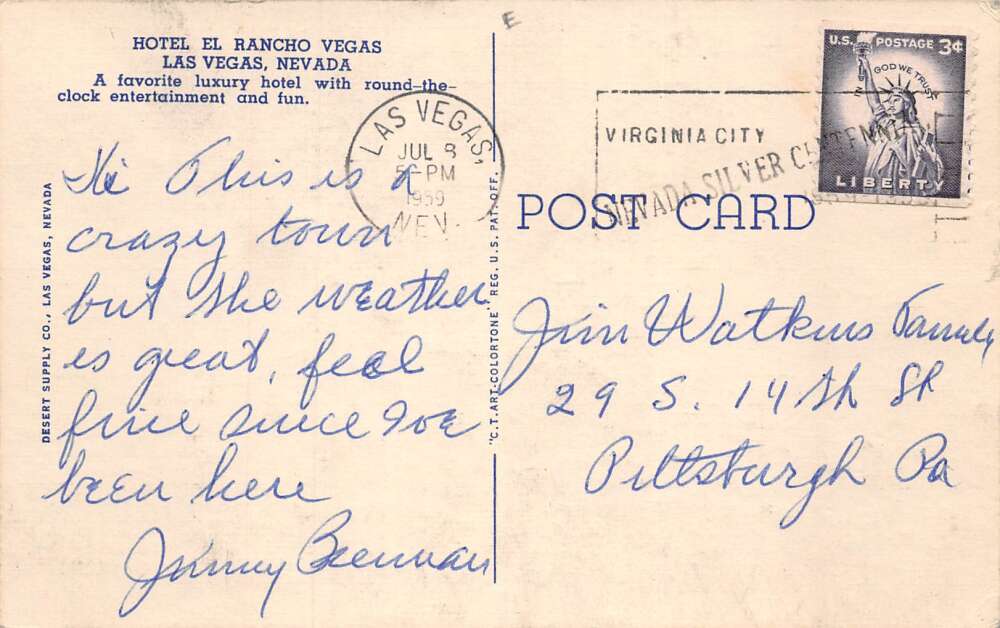 E
HOTEL EL RANCHO VEGAS
LAS VEGAS, NEVADA
A favorite luxury hotel with round-the-
clock entertainment and fun.
Hi This is a
crazy town
but the weather
is great, feel
fine since Ive
been here
Jimmy Brennan
DESERT SUPPLY CO., LAS VEGAS, NEVADA
"C.T. ART-COLORTONE" REG. U.S. PAT. OFF.
LAS VEGAS,
JUL 8
PM
1959
NEV.
VIRGINIA CITY
NEVADA SILVER CENTENNIAL
U.S. POSTAGE 3¢
IN GOD WE TRUST
LIBERTY
POST CARD
Jim Watkins Family
29 S. 14th St
Pittsburgh Pa